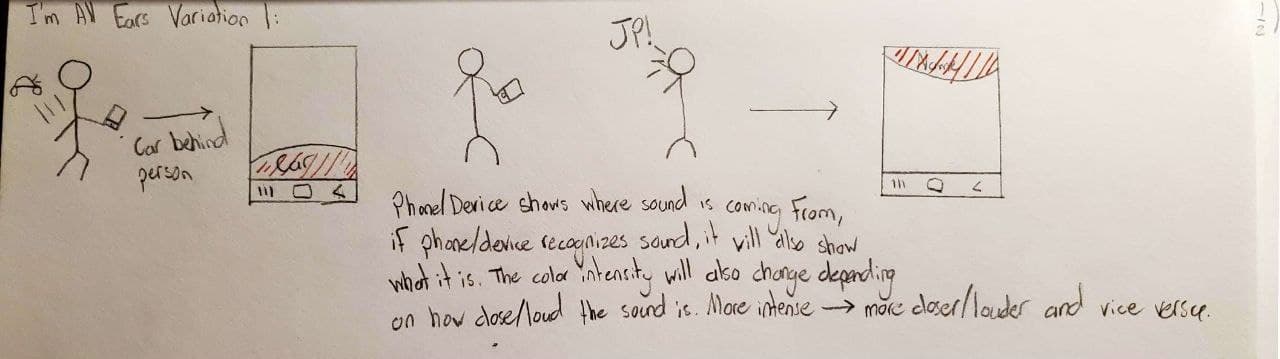 I'm All Ears Variation 1:
1/2
JP!
Car behind
person
Car
Name
Phone/Device shows where sound is coming from,
if phone/device recognizes sound, it will also show
what it is. The color intensity will also change depending
on how close/loud the sound is. More intense → more closer/louder and vice versa.